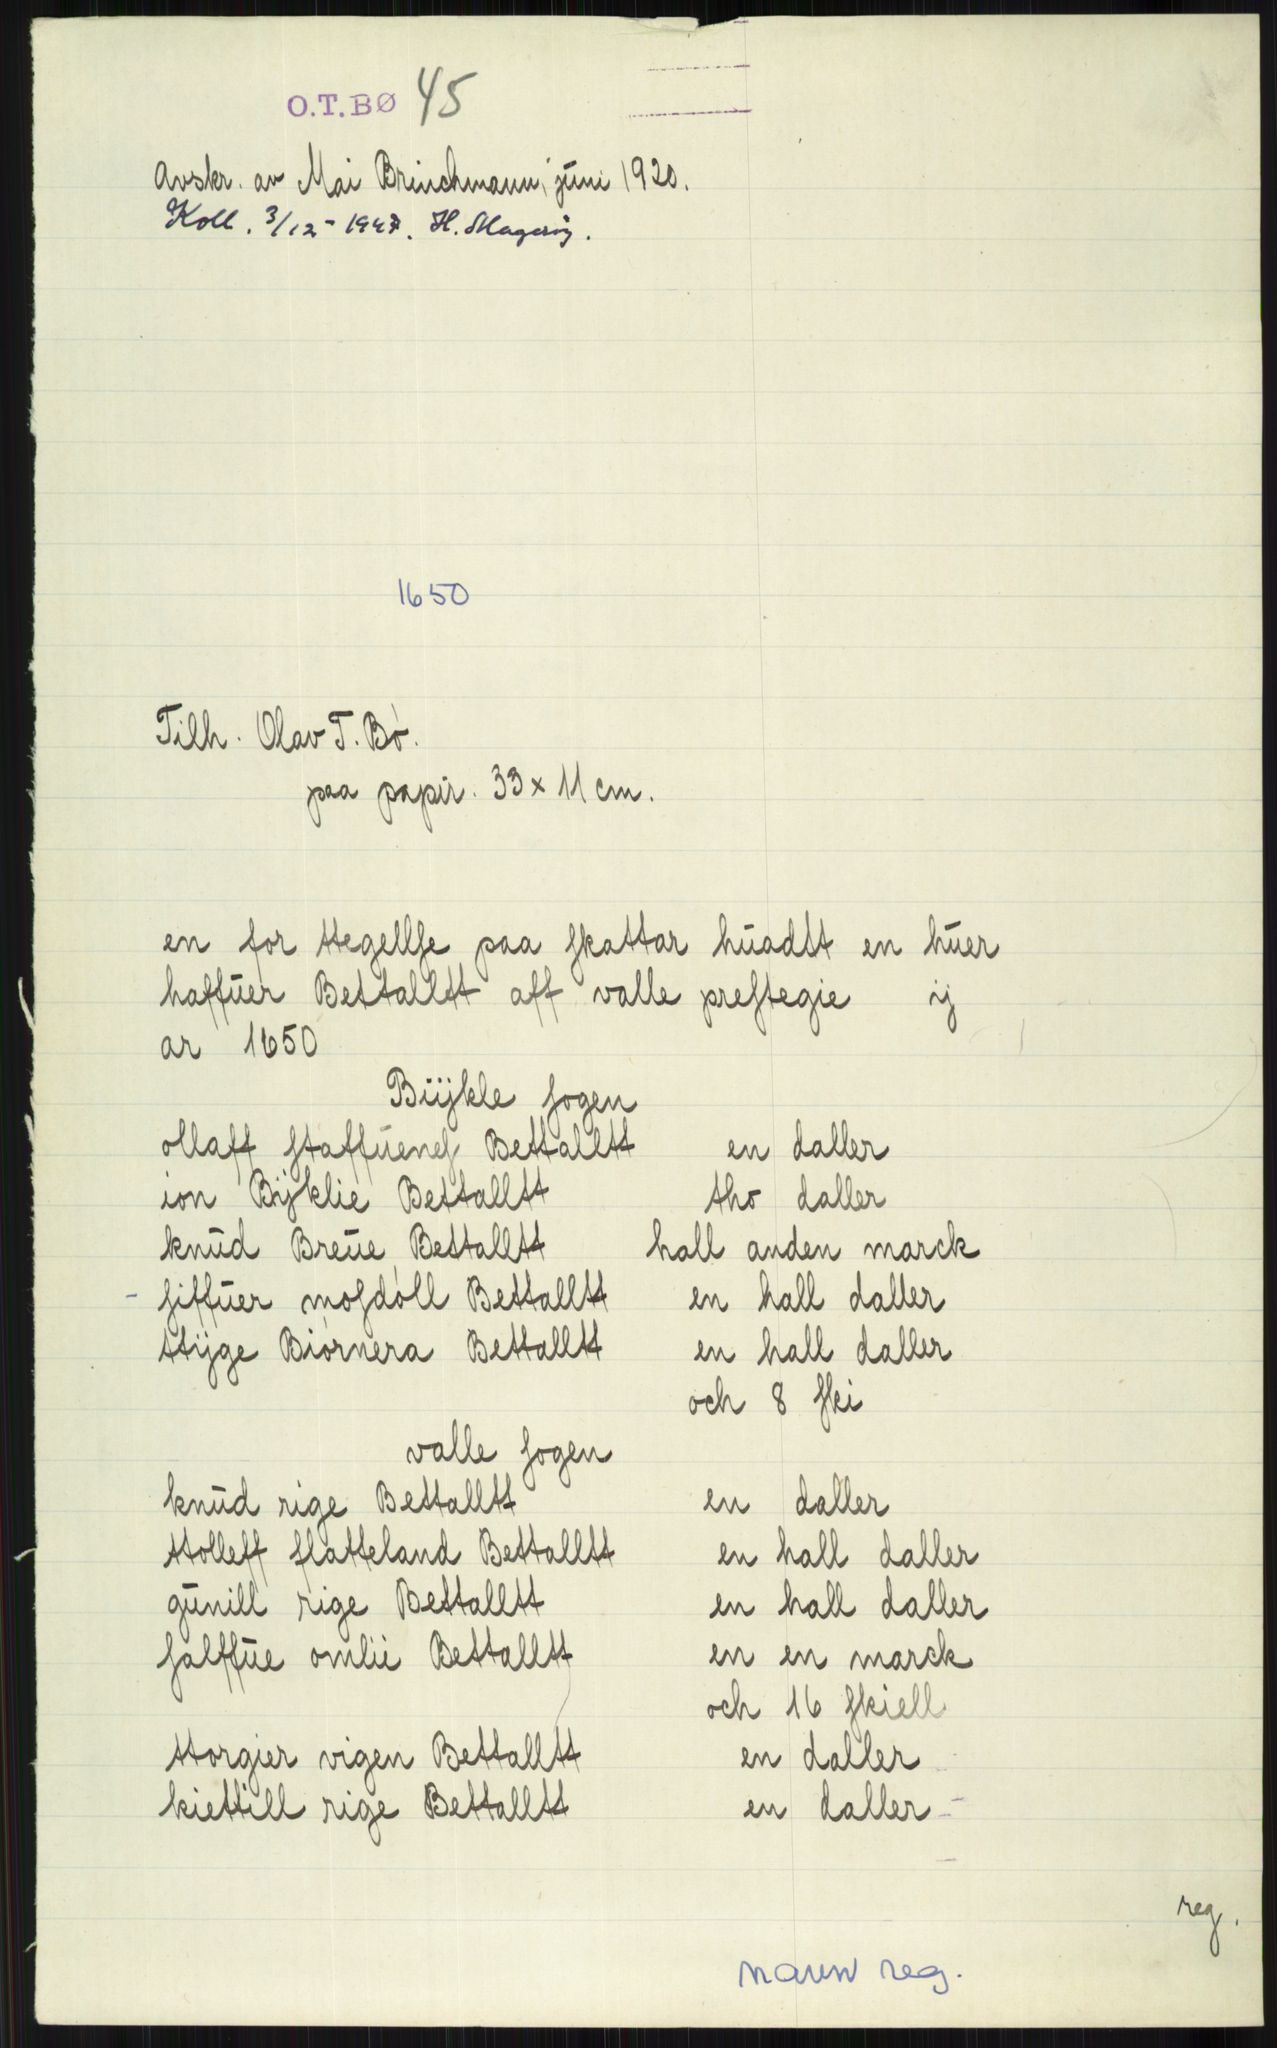 O.T.BØ 45
Avskr. av Mai Brinchmann, juni 1920.
Koll. 3/12 - 1947. H. Magerøy.
1650
Tilh. Olav T. Bø.
paa papir. 33 x 11 cm.
en for ttegellſe paa ſkattar hŭadtt en hŭer
haffŭer Bettalltt aff valle preſtegie ij
ar 1650
Bŭjkle ſogen
ollaff ſtaffŭeneſ Bettalltt en daller
ion Bijklie Bettalltt tho daller
knŭd Breŭe Bettalltt hall anden marck
- ſiffŭer moſdøll Bettalltt en hall daller
ttijge Biørnera Bettalltt en hall daller
och 8 ſki
valle ſogen
knŭd rige Bettalltt en daller
ttolleff flatteland Bettalltt en hall daller
gŭnill rige Bettalltt en hall daller
ſalffŭe omlii Bettalltt en en marck
och 16 ſkiell
ttorgier vigen Bettalltt en daller
kiettill rige Bettalltt en daller
reg.
navn reg.